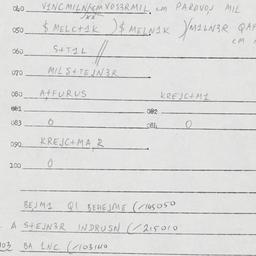 060 V1NCMILN/6cm VOS3RMIL. cm PAROVOJ MIL
050 $ MELC+1K )$ MELN1K )/M1LN3R QAF
cm
060 S++1L //
070 MILS+TEJN3R
080 A+FURUS KREJC+M1
081 082
083 0 084 0
090 KREJC+MA,R
100 0
BEJM1 Q1 BEHEJME (/145050
A S+EJN3R INDRUSN (/215010
103 BA LNC (/103140